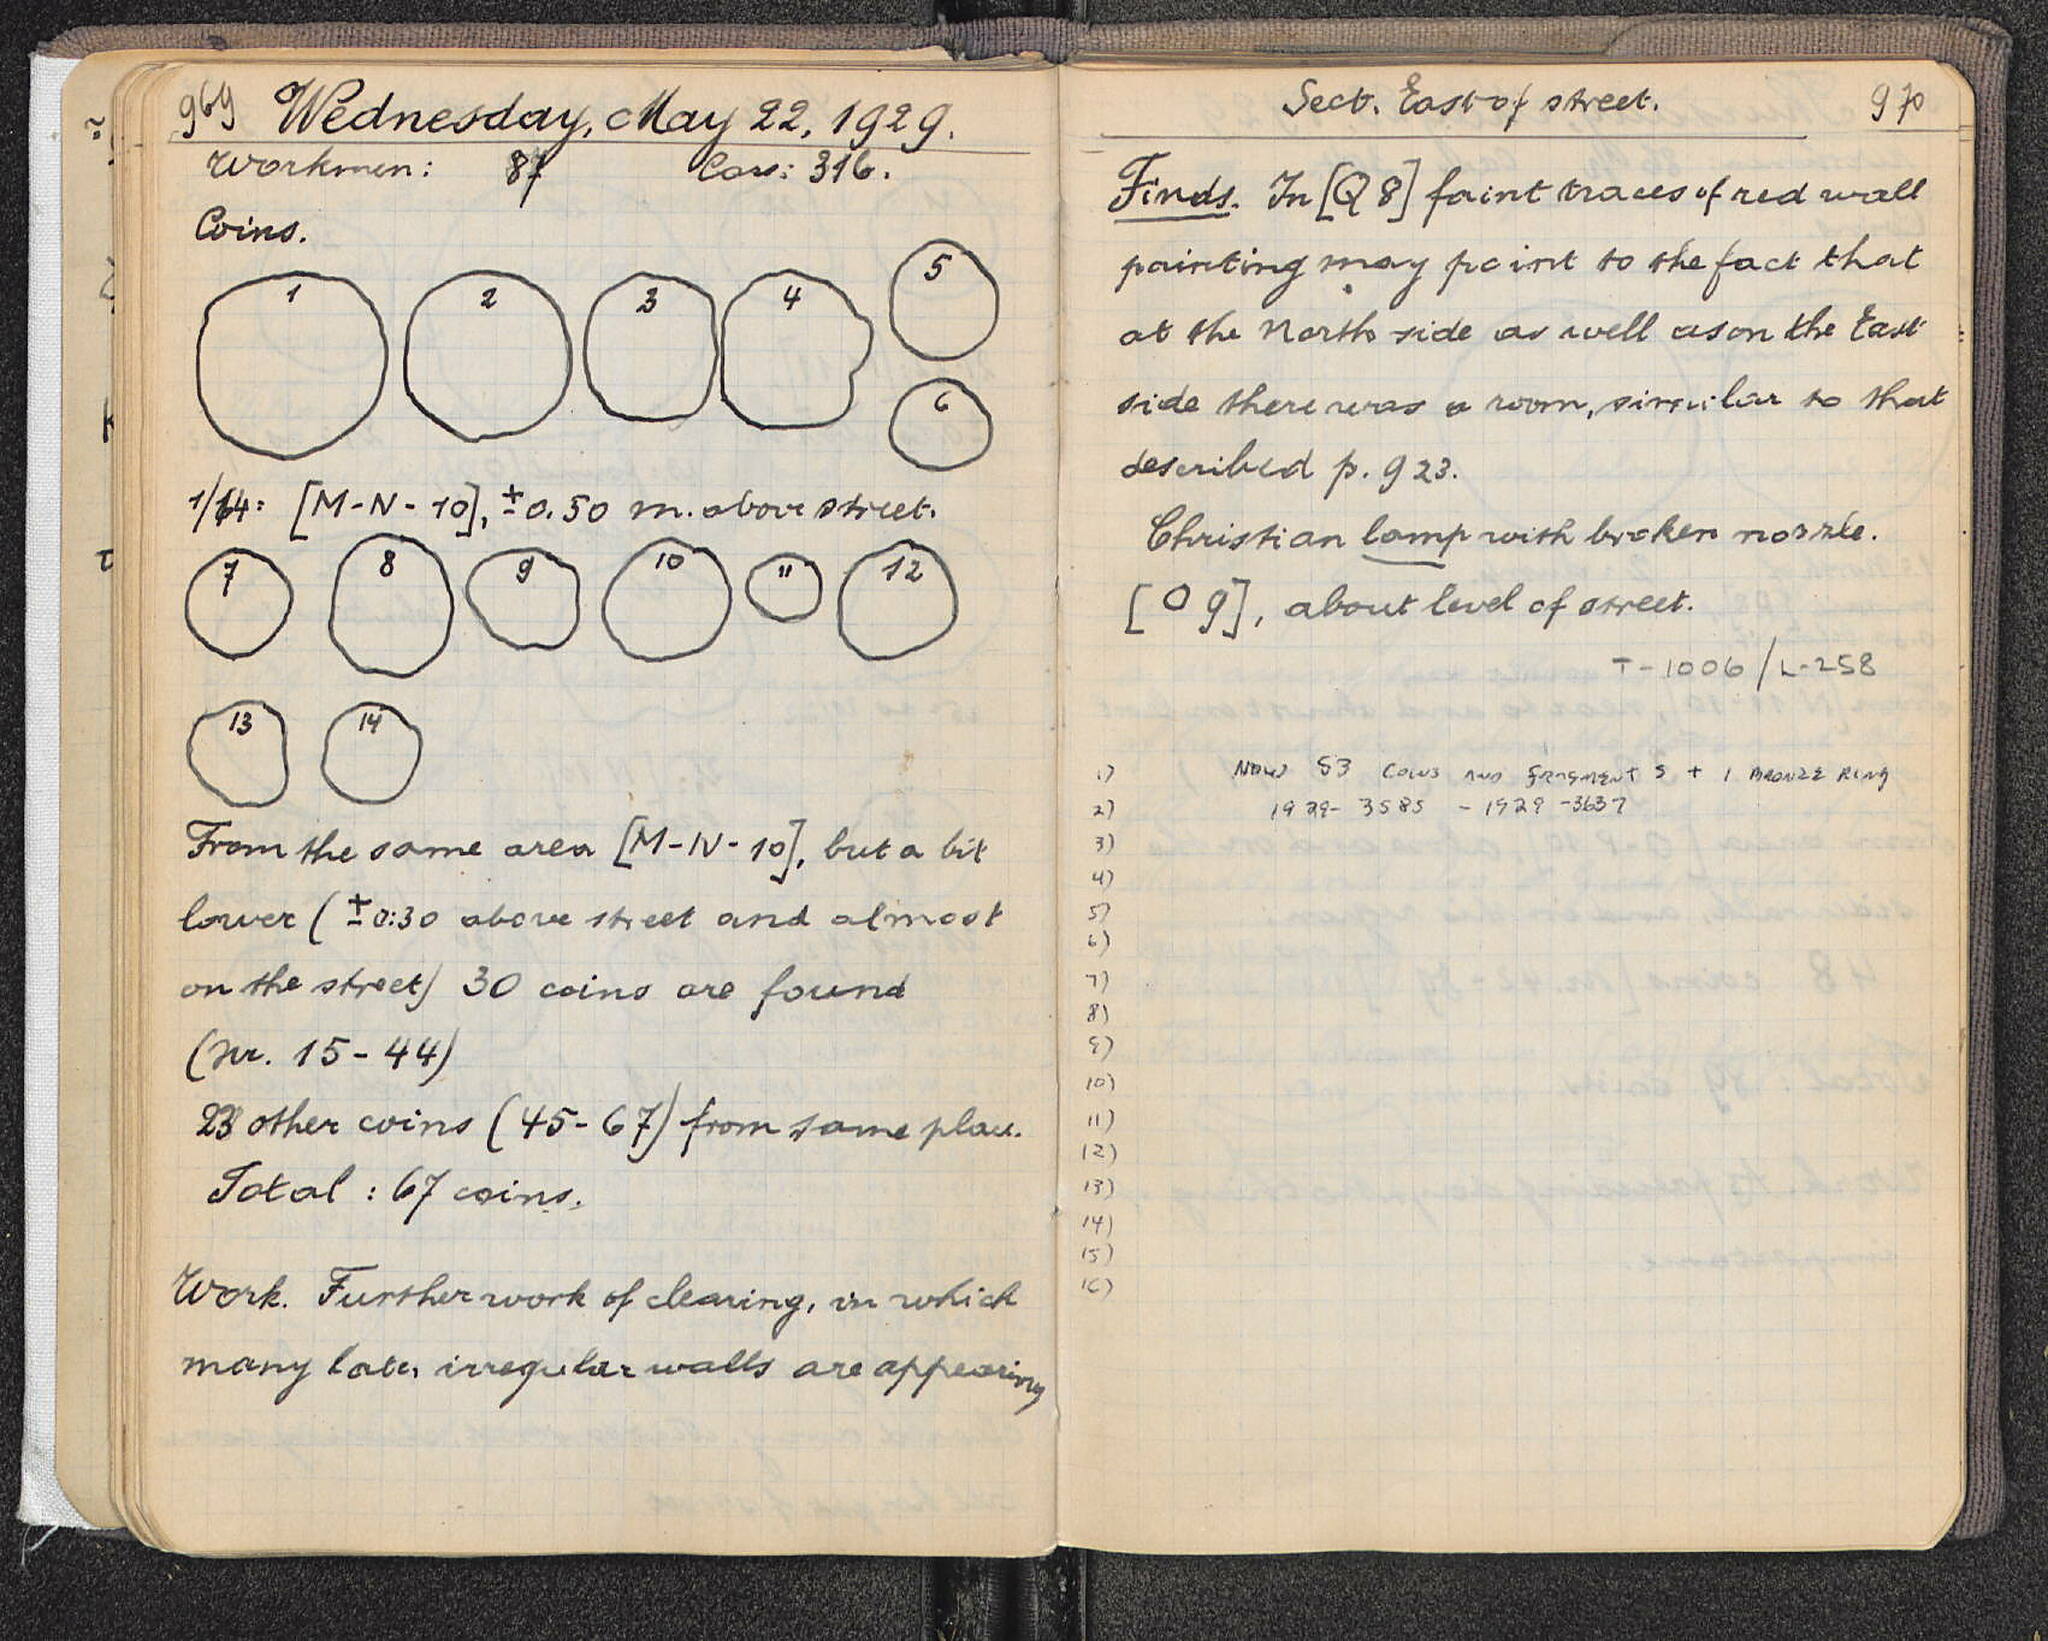 969 Wednesday, May 22, 1929.
Workmen: 87 Cars: 316.
Coins.
1 2 3 4 5
6
1/14: [M-N-10], ±0.50 m. above street.
7 8 9 10 11 12
13 14
From the same area [M-N-10], but a bit
lower (±0:30 above street and almost
on the street) 30 coins are found
(nr. 15-44)
23 other coins (45-67) from same place.
Total: 67 coins.
Work. Further work of clearing, in which
many later irregular walls are appearing
Sect. East of street. 970
Finds. In [Q 8] faint traces of red wall
painting may point to the fact that
at the North side as well as on the East
side there was a room, similar to that
described p. 923.
Christian lamp with broken nozzle.
[O 9], about level of street.
T-1006/L-258
1) Now 53 coins and fragments + 1 bronze ring
2) 1929-3585 - 1929-3637
3)
4)
5)
6)
7)
8)
9)
10)
11)
12)
13)
14)
15)
16)